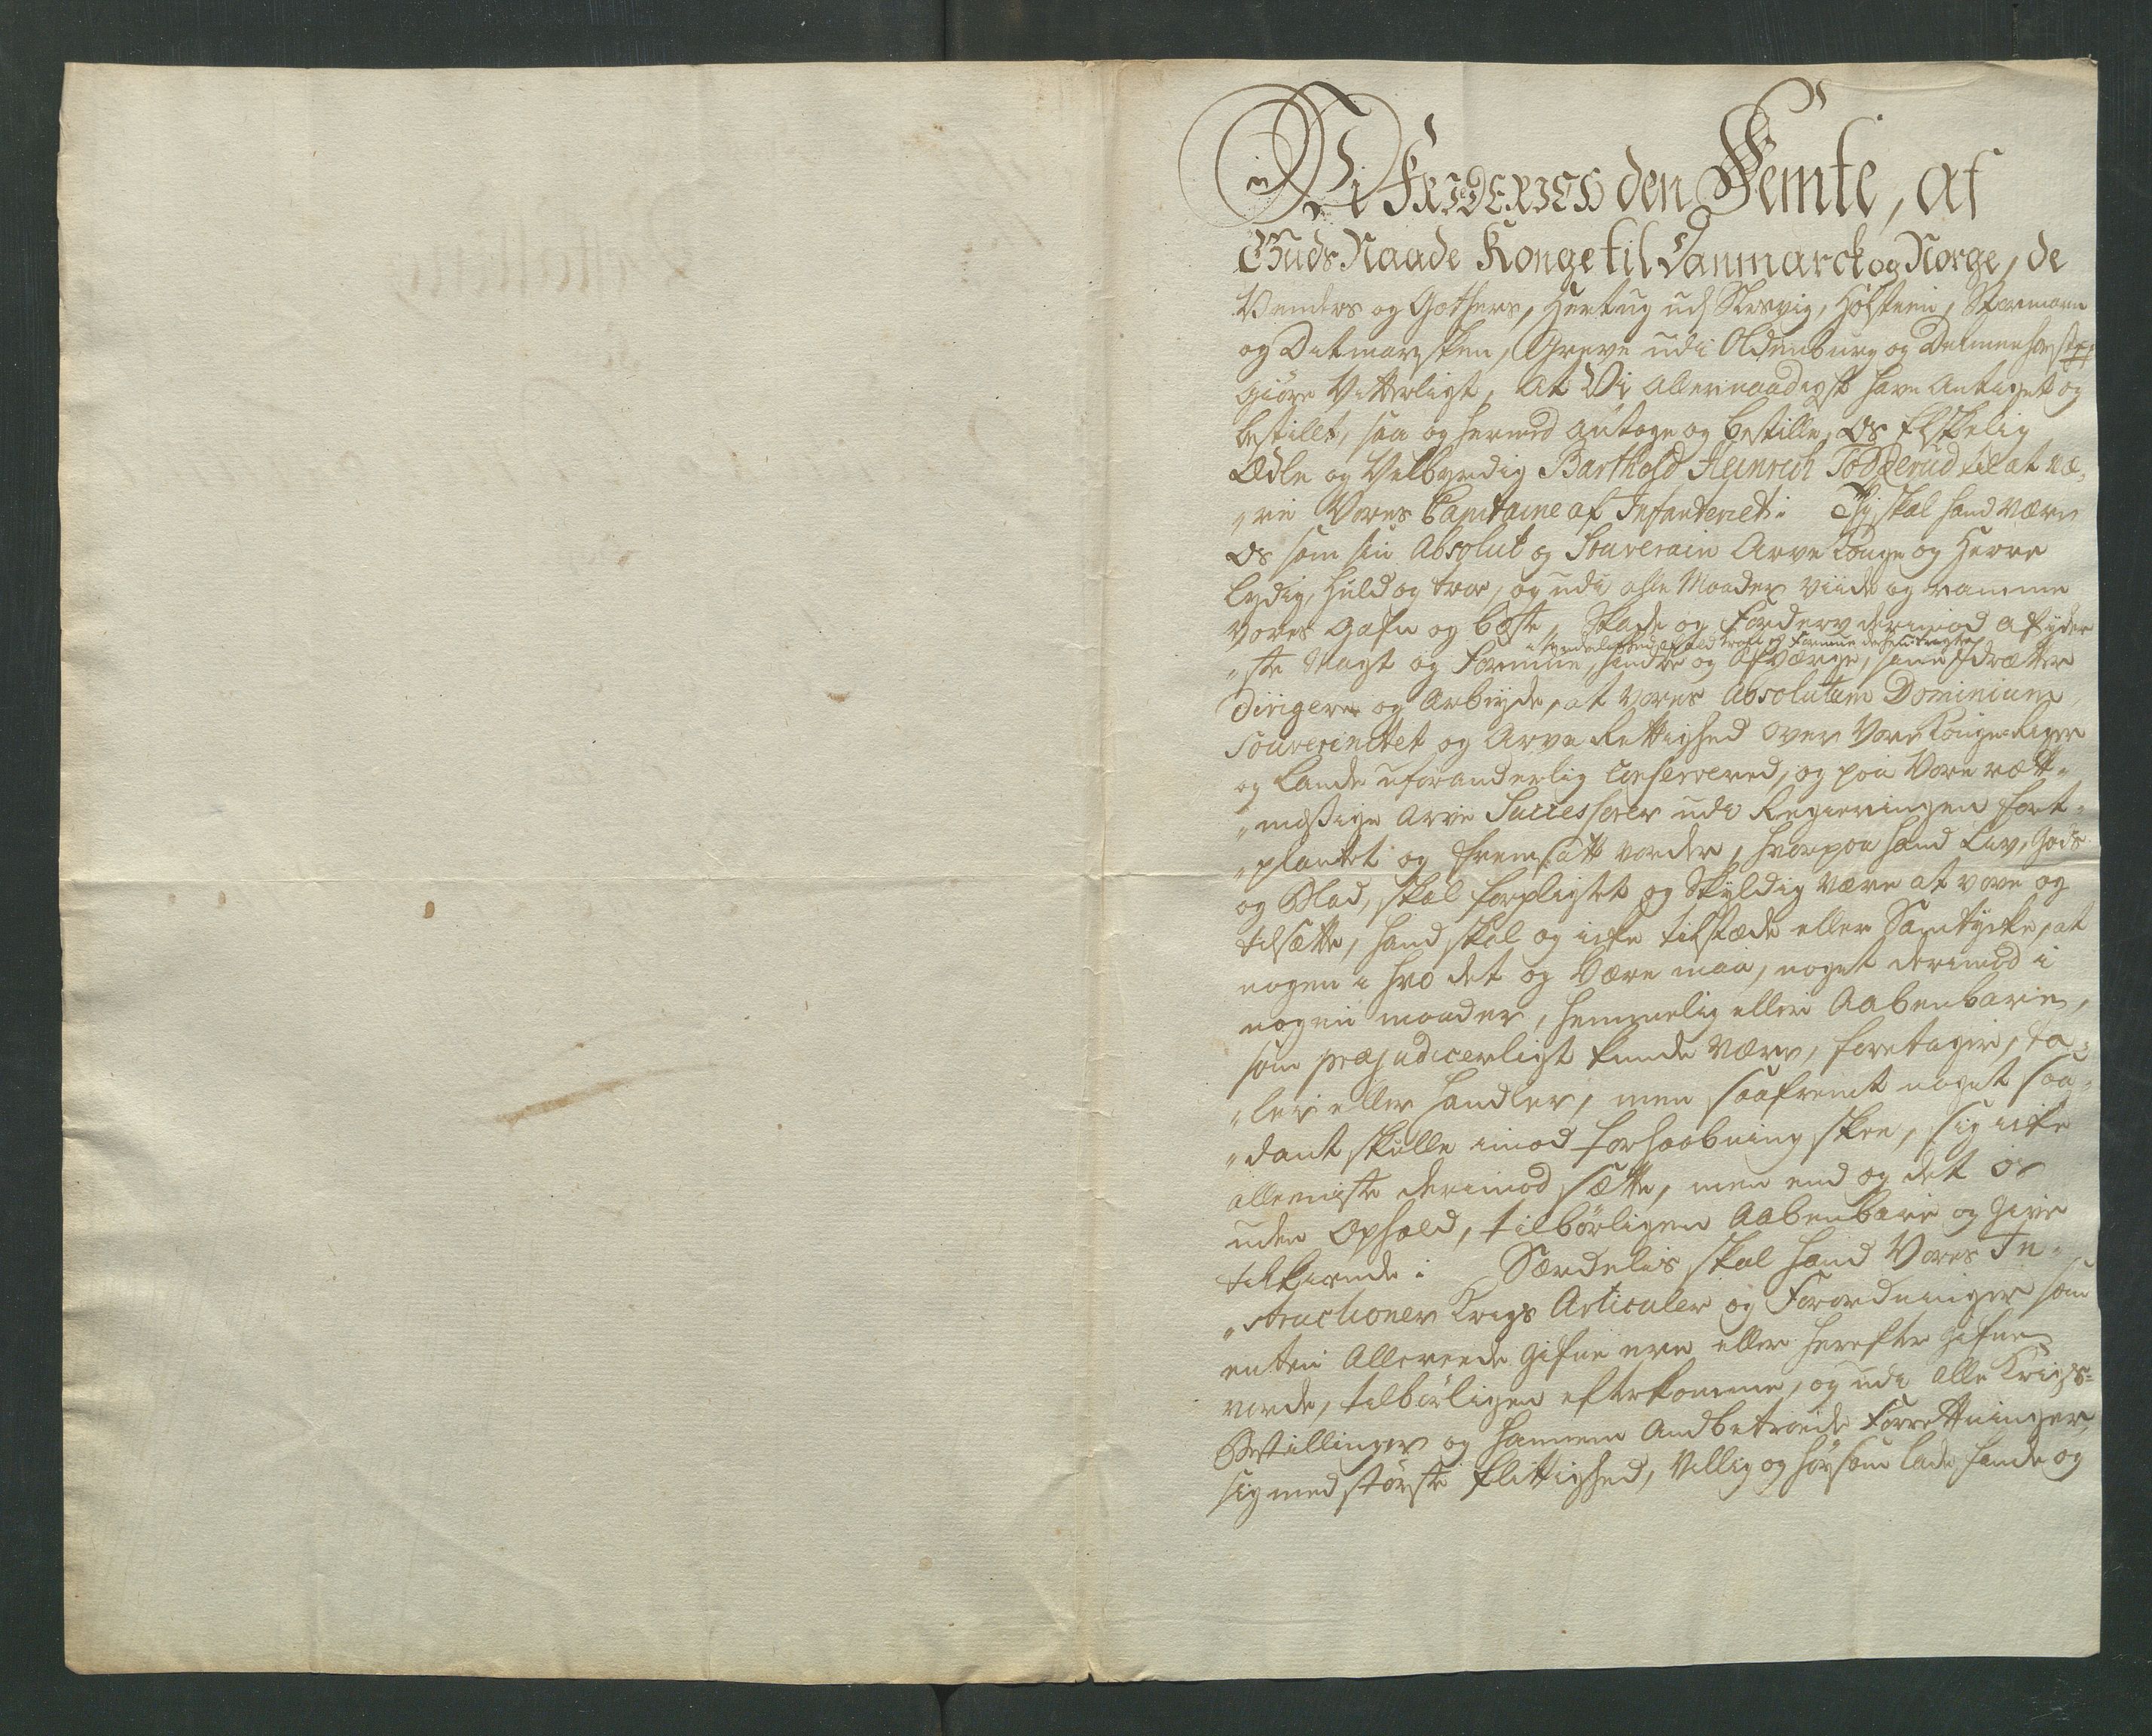 Vi FRIDERICH den Femte, af
Guds Naade Konge til Danmarck og Norge, de
Venders og Gothers, Hertug udi Slesvig, Holsteen, Stormarn
og Ditmarsken, Greve udi Oldenburg og Delmenhorst
Giøre Vitterligt, At Vi Allernaadigst have Antaget og
bestillt, saa og hermed Antage og bestille, Os Elskelig
Ædle og Velbyrdig Barthold Heinrich Tødderud til at væ¬
„re Vores Capitaine af Infanteriet: Thi skal hand være
Os som sin Absolut og Souverain Arve Konge og Herre
Lydig, Huld og troe, og udi alle Maader viide og ramme
Vores Gafn og beste, Skade og Forderv derimod af yder
„ste Magt og Formue, hindre og Afværge, sine Idrætter
i Synderlighed af ald Troft og Formue derhen
Dirigere og Arbeyde, at Vores Absolutum Dominium
Souverinetet og Arve Rettighed over Vore Konge-Riger
og Lande uforanderlig Conservered, og paa Vore rætt¬
„mæssige Arve Successorer udi Regieringen fort¬
„plantet og fremsatt vorder, hvorpaa hand Liv, Gods
og Blod, skal forpligtet og Skyldig være at vove og
tilsætte, hand skal og icke tilstæde eller Samtycke, at
nogen i hvo det og Være maa, noget derimod i
nogen maader, hemmelig eller Aabenbare,
som præjudicerligt kunde Være, foretager, ta¬
„ler eller handler, men saafremt noget saa¬
„dant skulle imod forhaabning skee, sig icke
alleeniste derimod sætte, men end og det os
uden Ophold, tilbørligen Aabenbare og Give
tilkiende: Særdelis skal hand Vores In¬
„structioner Krigs Articuler og Forordninger som
enten Allereede Gifne ere eller herefter Gifne
vorde, tilbørligen efterkomme, og udi alle Krigs¬
Bestillinger og hannem Andbetroede Forrettninger,
sig med største flittighed, Villig og hørsom lade finde og